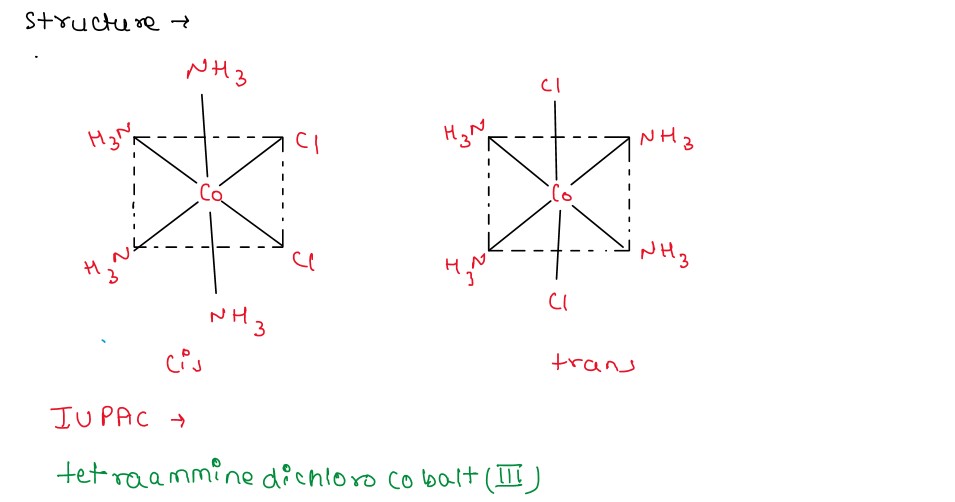 Structure →
NH3
Cl
H3N
Cl
H3N
NH3
Co
Co
H3N
Cl
H3N
NH3
NH3
Cl
cis
trans
IUPAC →
tetraammine dichloro cobalt (III)